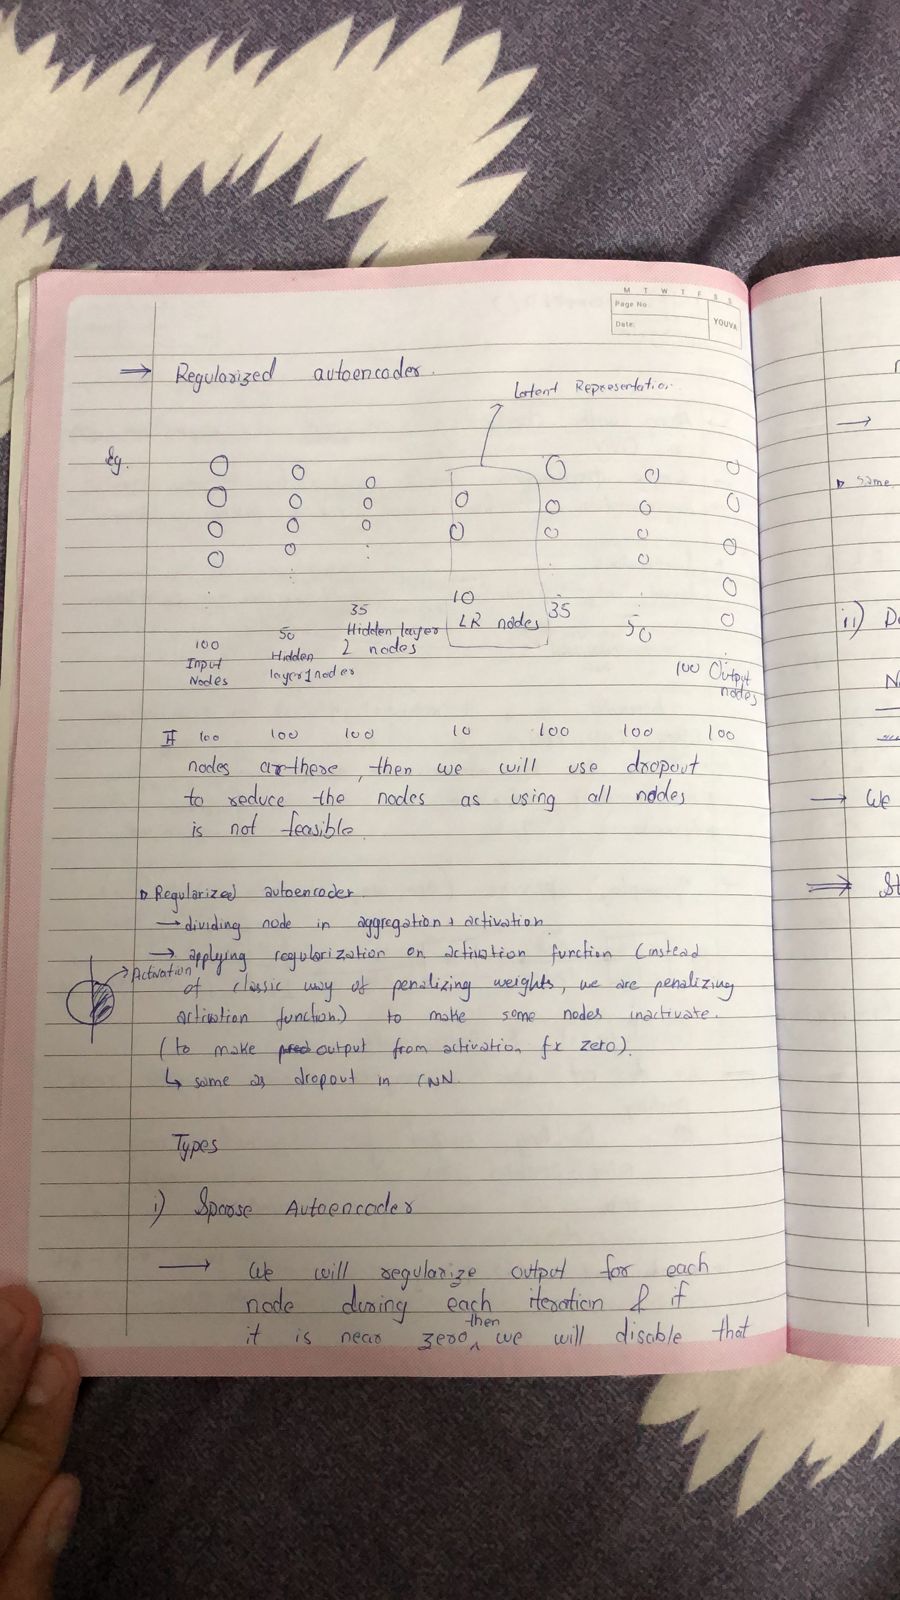 M T W T F S S
Page No
Date:
YOUVA
⟹ Regularized autoencoder.
Latent Representation
Eg.
100 Input Nodes
50 Hidden layer 1 nodes
35 Hidden layer 2 nodes
10 LR nodes
35
50
100 Output nodes
If 100 100 100 10 100 100 100
nodes are there, then we will use dropout
to reduce the nodes as using all nodes
is not feasible.
Regularized autoencoder
→ dividing node in aggregation + activation
→ applying regularization on activation function (instead
→ Activation
of classic way of penalizing weights, we are penalizing
activation function) to make some nodes inactivate.
(to make output from activation fx zero).
↳ same as dropout in CNN.
Types
i) Sparse Autoencoder
→ We will regularize output for each
node during each iteration & if
it is near zero then we will disable that
→
same
ii)
→ We
⟹